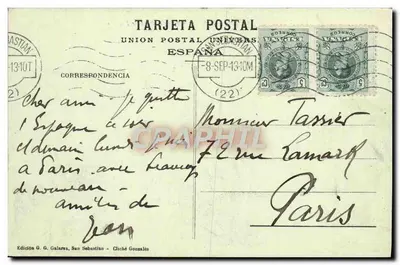 TARJETA POSTAL
UNION POSTAL UNIVERSAL
ESPAÑA
CORRESPONDENCIA
SAN SEBASTIAN
-8·SEP·13·10M
(22)
Cher ami je quitte
l'Espagne ce soir
et demain lundi je suis
à Paris avec beaucoup
de nouveau
amitiés de
Jean
Monsieur Tassier
72 rue Lamark
Paris
Edición G. G. Galarza, San Sebastian - Cliché Gonzalez